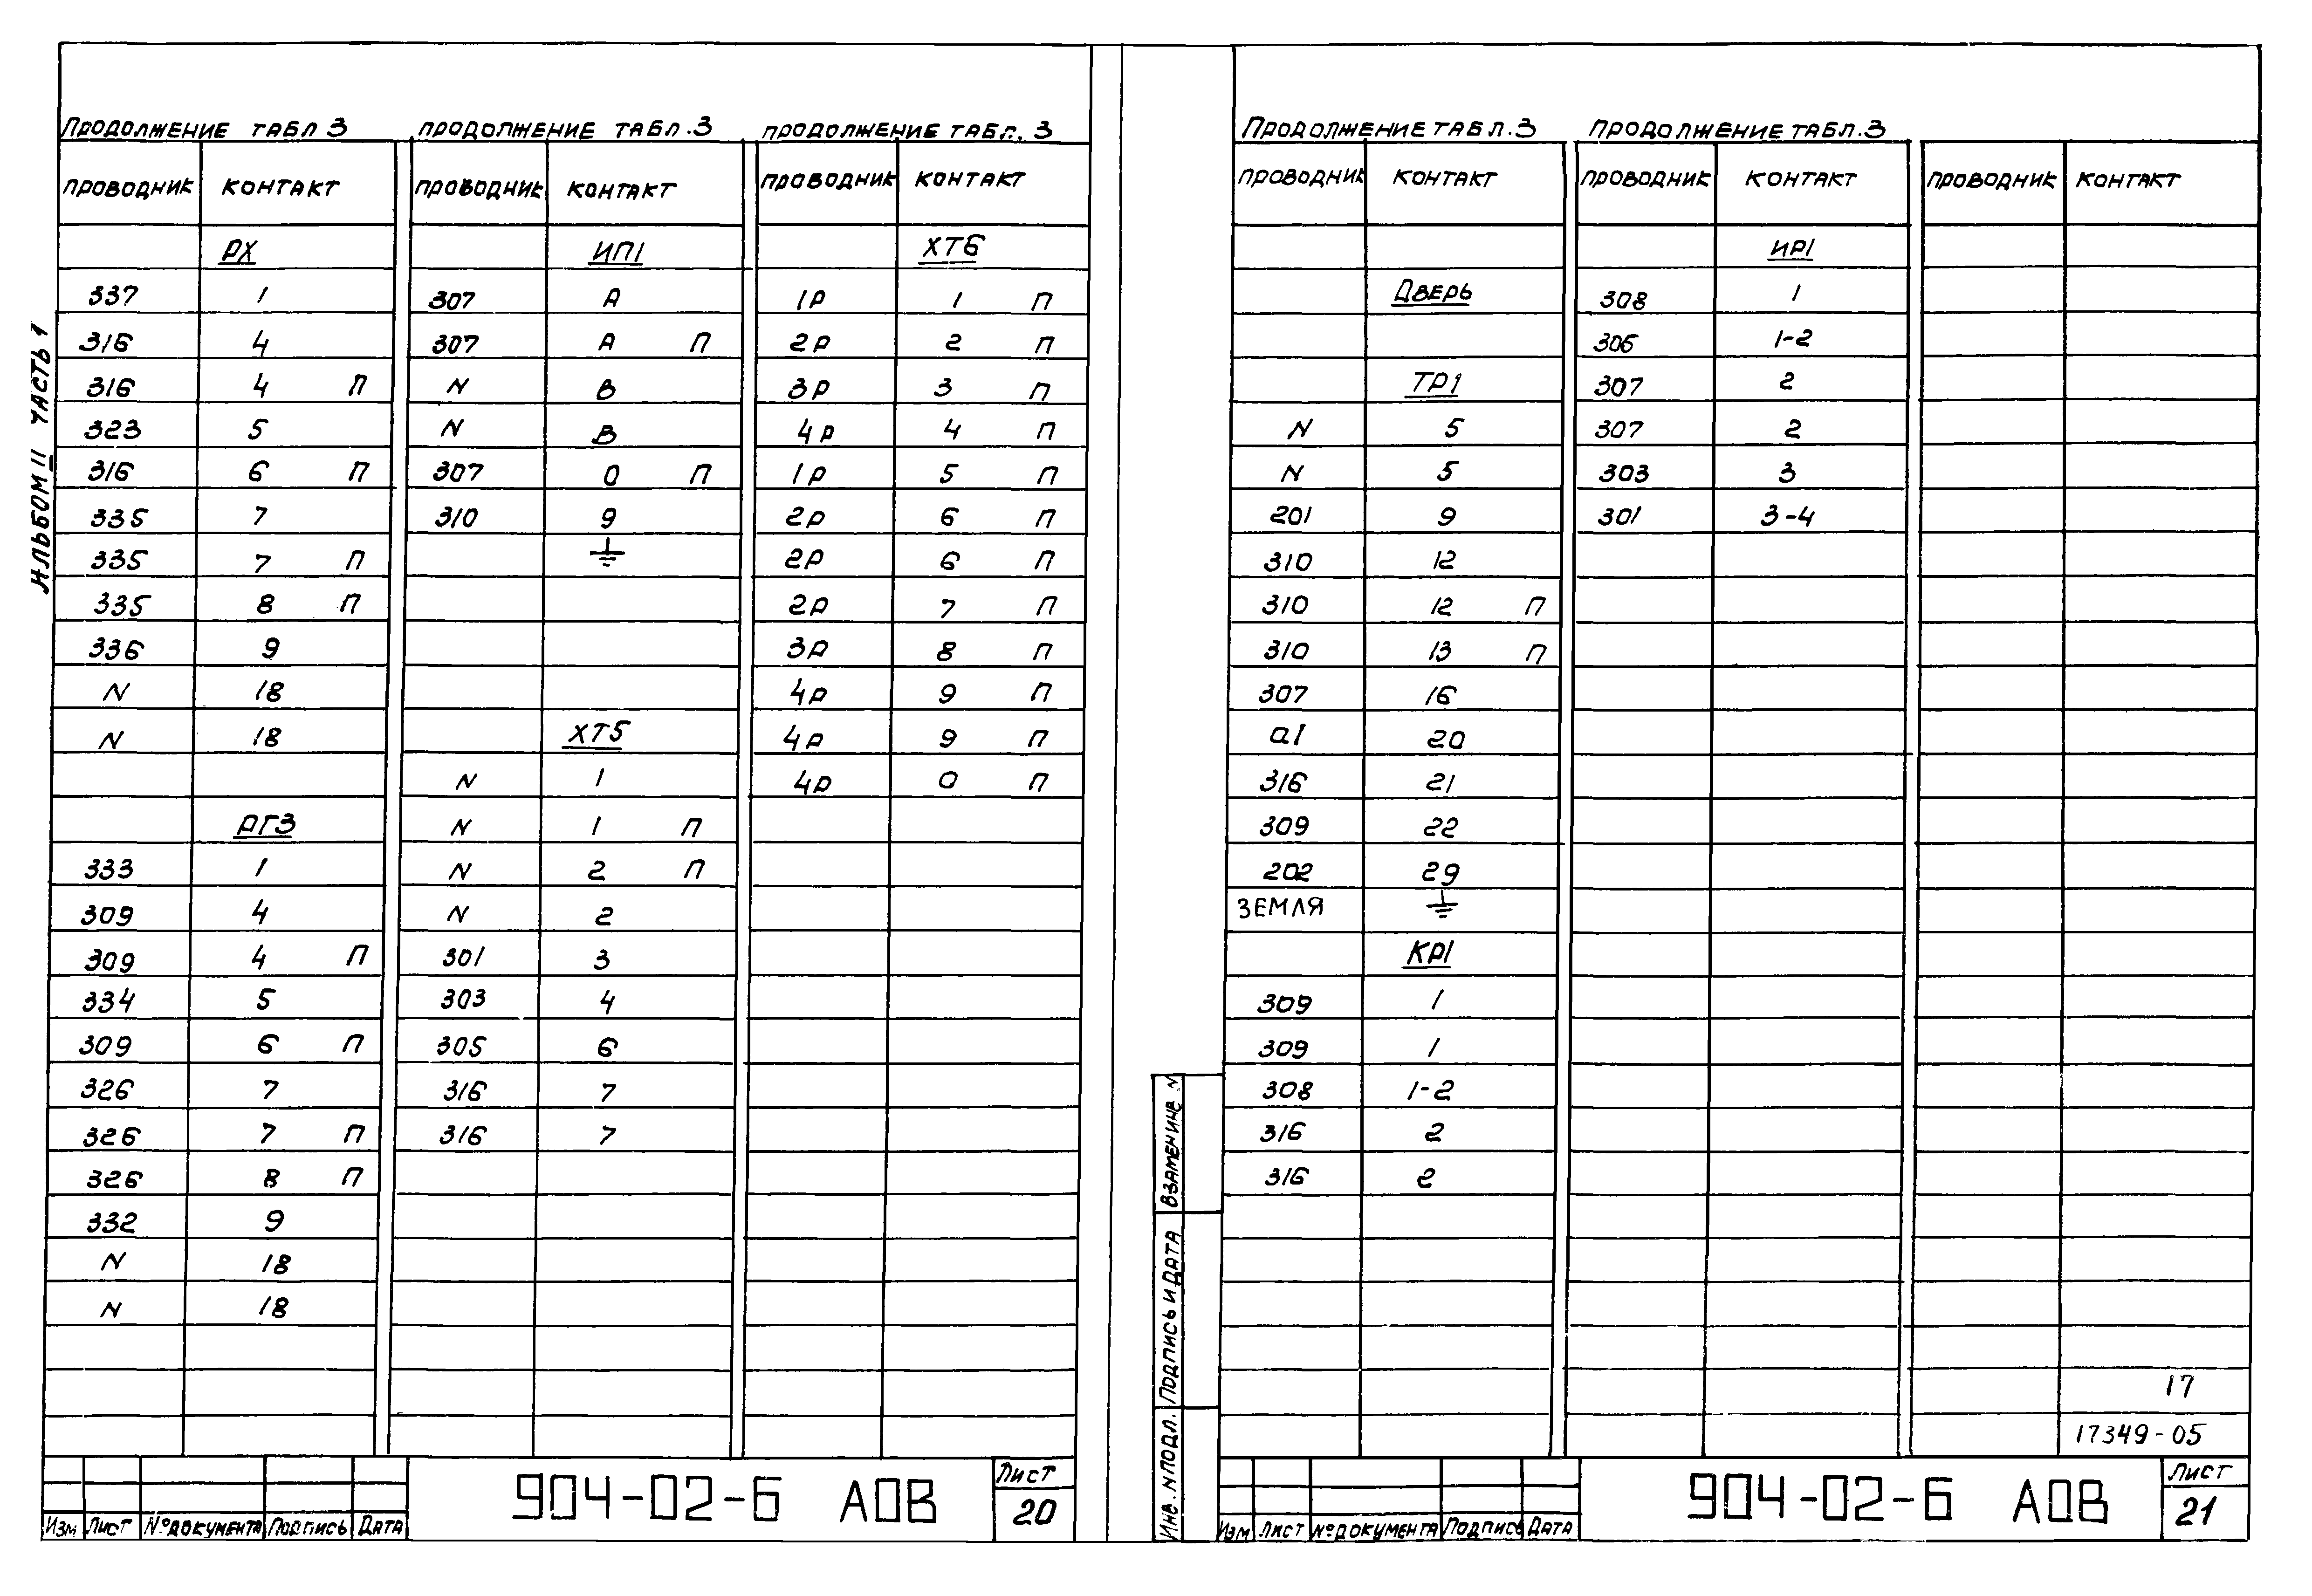 Альбом II часть 1
Продолжение табл 3
проводник контакт
РХ
337 1
316 4
316 4 П
323 5
316 6 П
335 7
335 7 П
335 8 П
336 9
N 18
N 18
РГ3
333 1
309 4
309 4 П
334 5
309 6 П
326 7
326 7 П
326 8 П
332 9
N 18
N 18
продолжение табл.3
проводник контакт
ИП1
307 А
307 А П
N В
N В
307 0 П
310 9
⏚
ХТ5
N 1
N 1 П
N 2 П
N 2
301 3
303 4
305 6
316 7
316 7
продолжение табл. 3
проводник контакт
ХТ6
1Р 1 П
2Р 2 П
3Р 3 П
4Р 4 П
1Р 5 П
2Р 6 П
2Р 6 П
2Р 7 П
3Р 8 П
4Р 9 П
4Р 9 П
4Р 0 П
Изм Лист №документа Подпись Дата
904-02-6 АОВ
Лист
20
Продолжение табл.3
проводник контакт
Дверь
ТР1
N 5
N 5
201 9
310 12
310 12 П
310 13 П
307 16
а1 20
316 21
309 22
202 29
Земля ⏚
КР1
309 1
309 1
308 1-2
316 2
316 2
продолжение табл.3
проводник контакт
ИР1
308 1
306 1-2
307 2
307 2
303 3
301 3-4
проводник контакт
17
17349-05
Взамен инв. N
Подпись и дата
Инв. N подл.
Изм Лист №документа Подпись Дата
904-02-6 АОВ
Лист
21